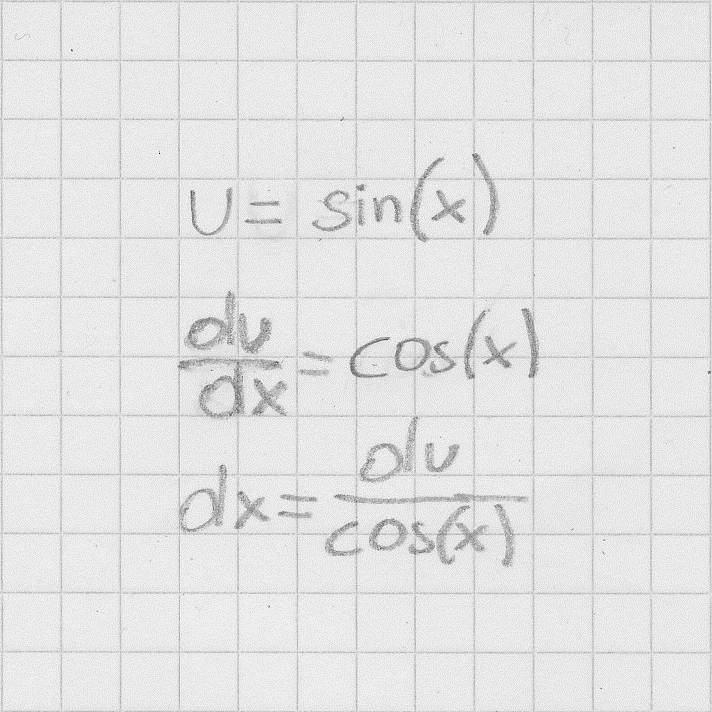 U = sin(x)
du/dx = cos(x)
dx = du/cos(x)